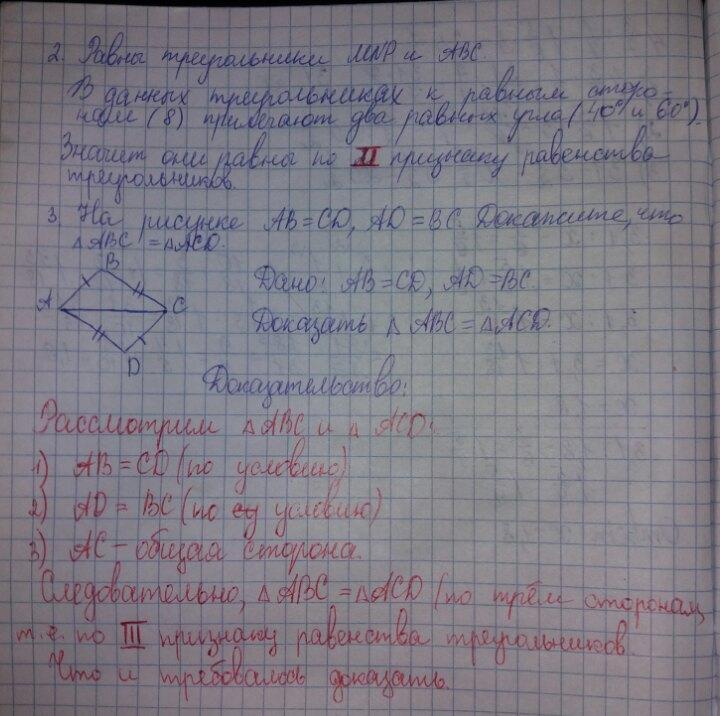 2. Равны треугольники MNP и ABC.
В данных треугольниках к равным сторо-
нам (8) прилегают два равных угла (40° и 60°).
Значит они равны по II признаку равенства
треугольников.
3. На рисунке AB = CD, AD = BC. Докажите, что
△ABC = △ACD.
B
A
C
D
Дано: AB = CD, AD = BC.
Доказать △ ABC = △ ACD.
Доказательство:
Рассмотрим △ ABC и △ ACD:
1) AB = CD (по условию)
2) AD = BC (по условию)
3) AC - общая сторона.
Следовательно, △ ABC = △ ACD (по трём сторонам,
т.е. по III признаку равенства треугольников.
Что и требовалось доказать.